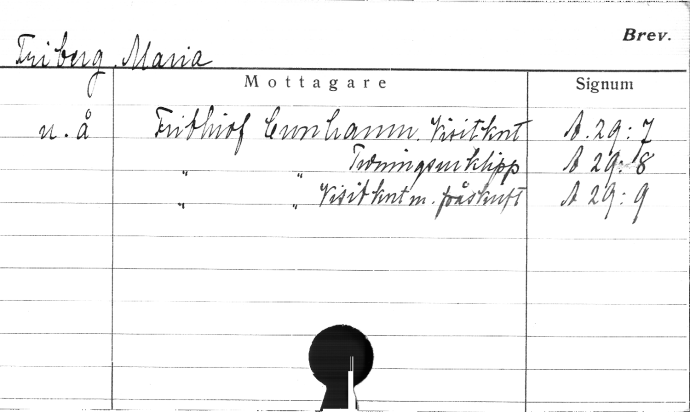 Brev.
Friberg, Maria
Mottagare Signum
u. å Frithiof Cronhamn. Visitkort A. 29:7
" " Tidningsurklipp A 29:8
" " Visitkort m. påskrift A 29:9